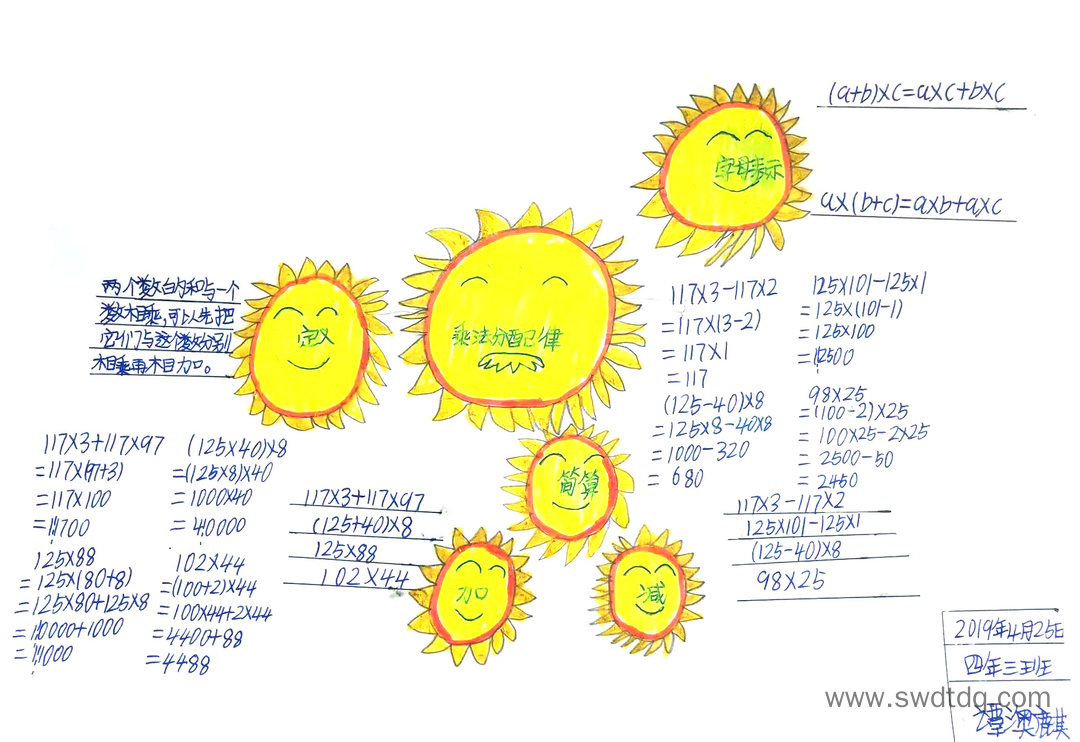 (a+b)×c=a×c+b×c
字母表示
a×(b+c)=a×b+a×c
两个数的和与一个
数相乘,可以先把
它们与这个数分别
相乘再相加。
定义
乘法分配律
117×3-117×2
=117×(3-2)
=117×1
=117
(125-40)×8
=125×8-40×8
=1000-320
=680
125×101-125×1
=125×(101-1)
=125×100
=12500
98×25
=(100-2)×25
=100×25-2×25
=2500-50
=2450
简算
117×3+117×97
=117×(97+3)
=117×100
=11700
125×88
=125×(80+8)
=125×80+125×8
=10000+1000
=11000
(125×40)×8
=(125×8)×40
=1000×40
=40000
102×44
=(100+2)×44
=100×44+2×44
=4400+88
=4488
117×3+117×97
(125+40)×8
125×88
102×44
加
减
117×3-117×2
125×101-125×1
(125-40)×8
98×25
2019年4月25日
四年三班
谭澳麒
www.swdtdq.com